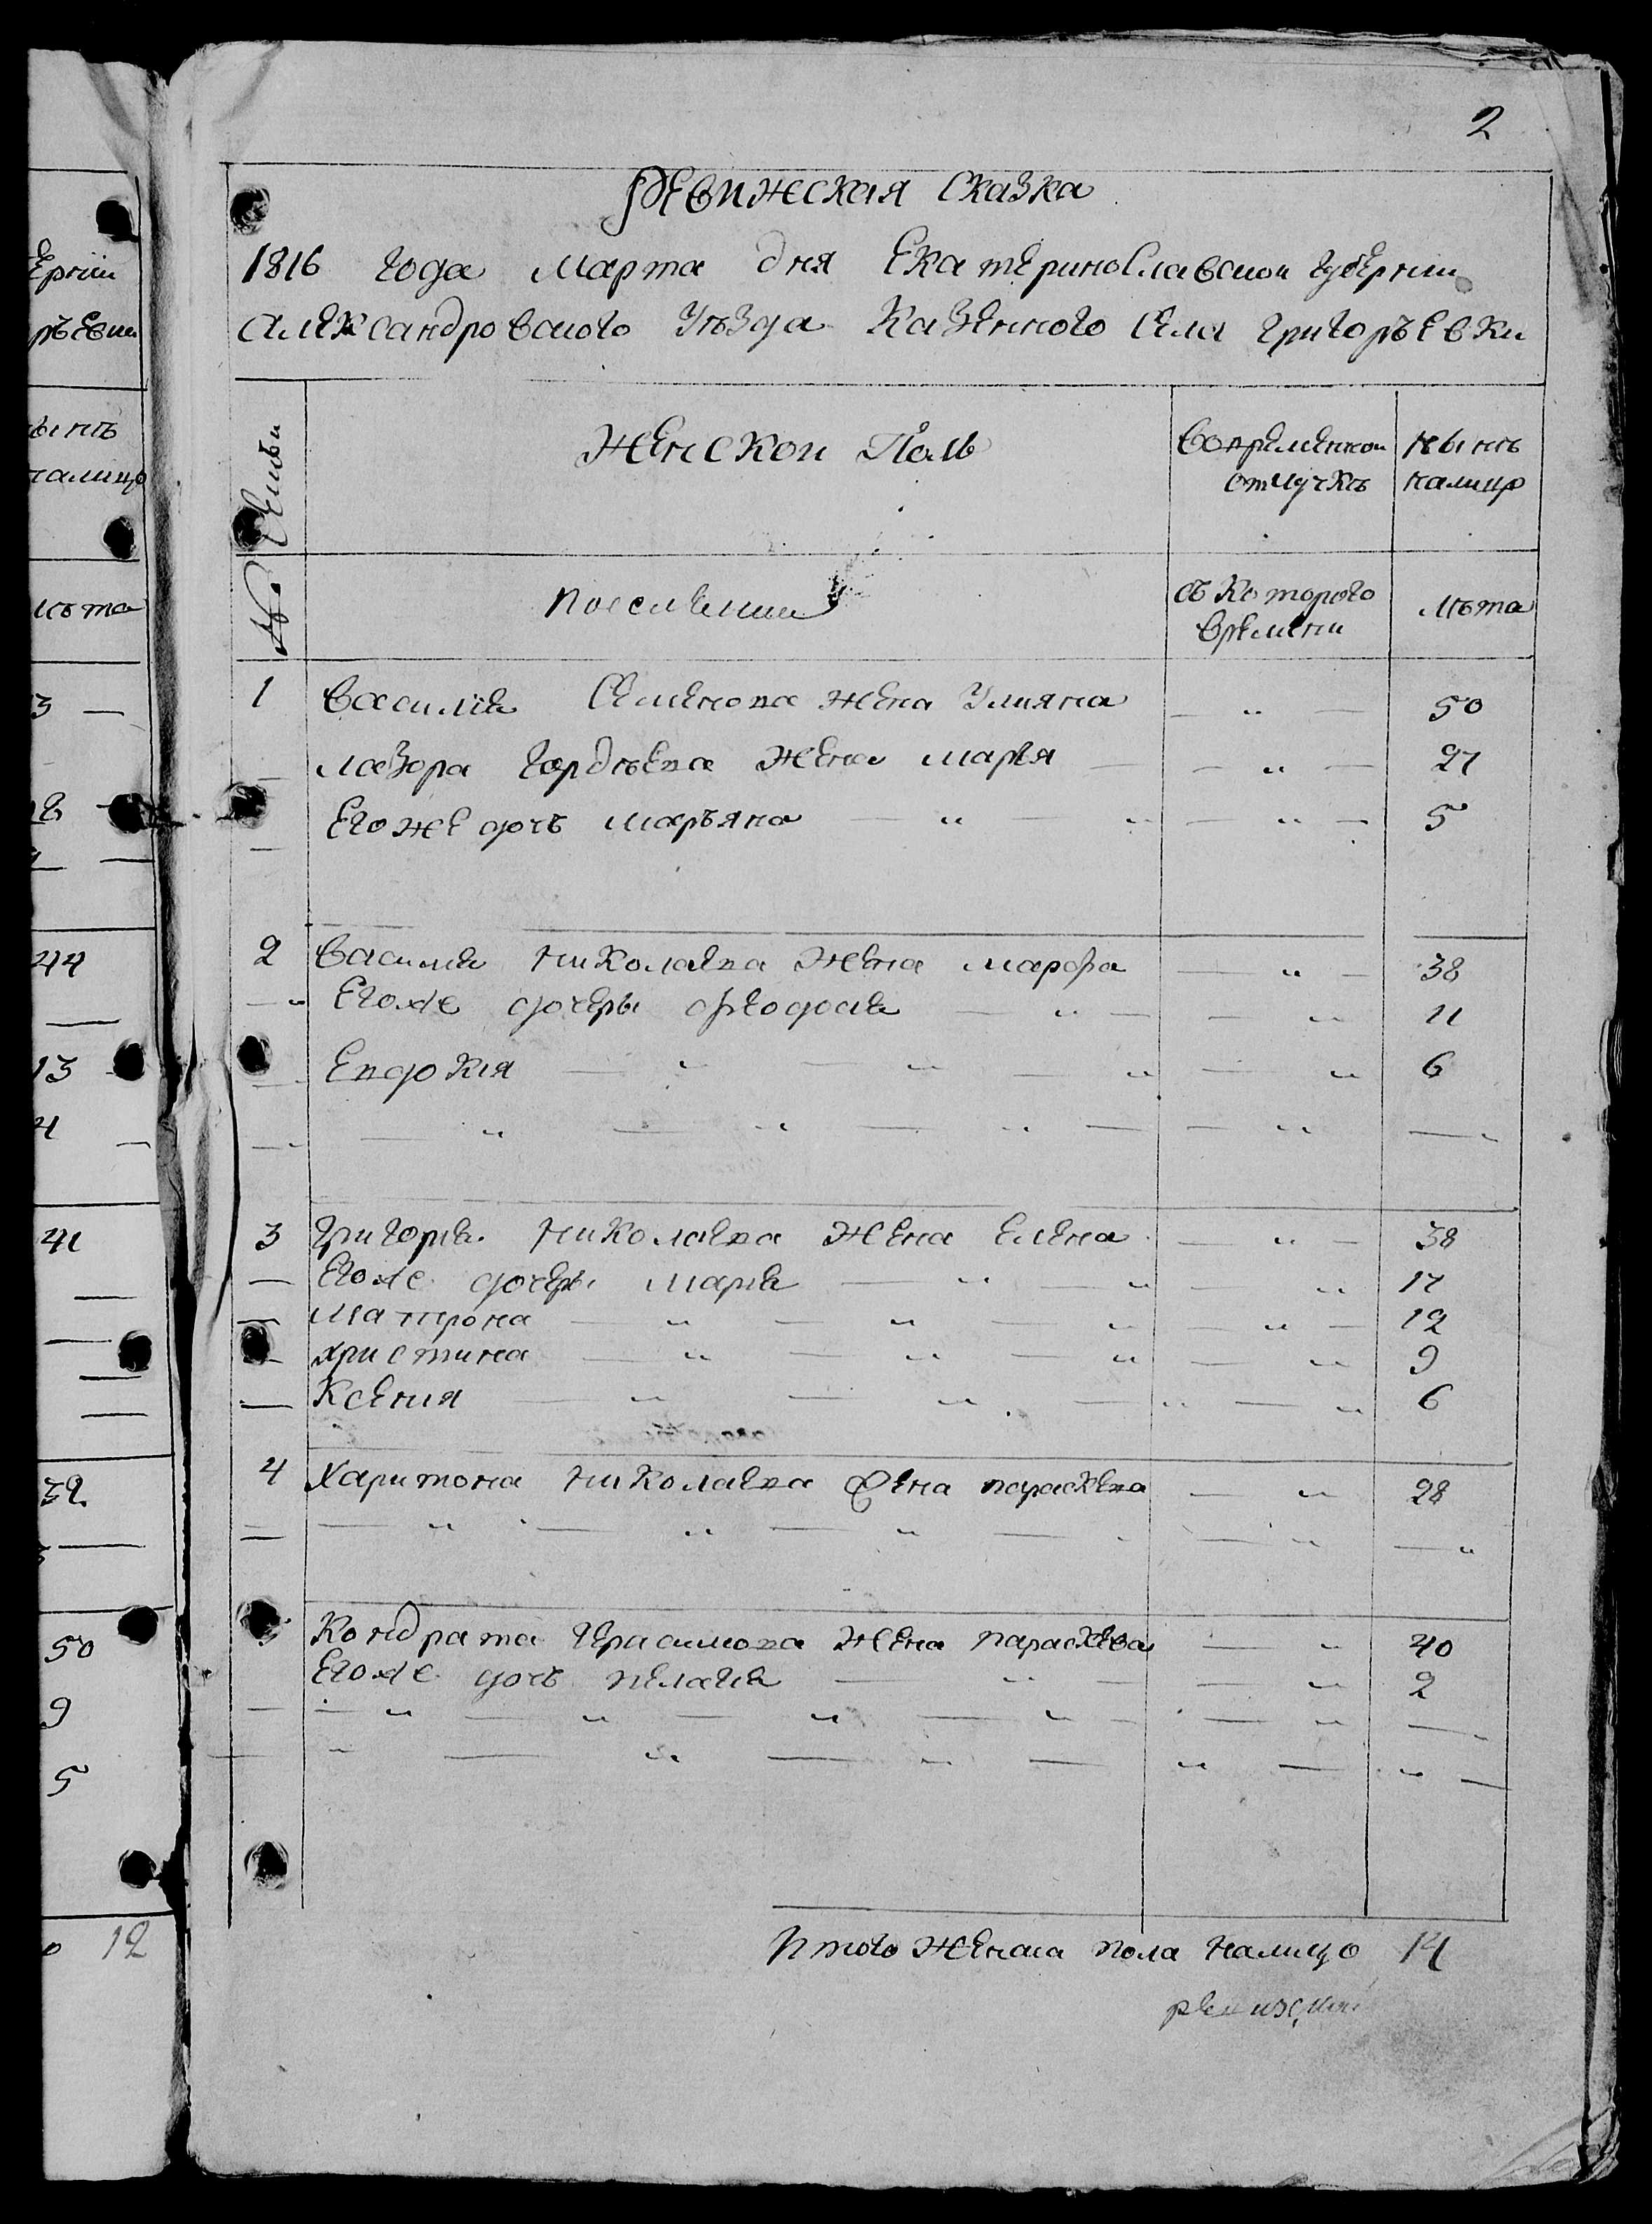 2
Ревижская Сказка
1816 года Марта дня Екатеринославской губернии
Александровского Уъзда Казенного Села Григоръевки
ернии
ръевки
№ Семьи
Женской Полъ
Вовременной
отлучкъ
нынъ
налицо
ынъ
налицо
съ Которого
времени
лъта
лъта
1 Василия Семенова жена Улияна — „ — 50
Лазора Гордъева жена Марья — — „ — 27
Егоже дочъ Маръяна „ — „ — „ — 5
2 Василия Николаева жена Марфа — „ — 38
Егоже дочеры Феодосия — „ — — „ 11
Евдокия — „ — „ — „ — „ 6
3 Григория Николаева жена Елена — „ — 38
Егоже дочеры Мария — „ — „ — „ 17
Матрона — „ — „ — „ „ — 12
Христина — „ — „ — „ — „ 9
Ксения — „ — „ — „ — „ 6
4 Харитона Николаева жена Параскева — „ 28
Кондрата Герасимова жена Параскева — „ 40
Егоже дочъ Пелагия — „ — — „ 2
Итого женска пола налицо 14
3 —
44
13
4
41
32
50
9
5
о 12